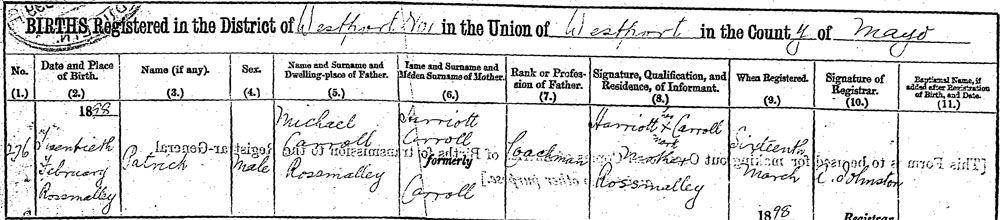 BIRTHS Registered in the District of Westport No1 in the Union of Westport in the County of Mayo
No. Date and Place of Birth. Name (if any). Sex. Name and Surname and Dwelling-place of Father. Name and Surname and Maiden Surname of Mother. Rank or Profession of Father. Signature, Qualification, and Residence, of Informant. When Registered. Signature of Registrar. Baptismal Name, if added after Registration of Birth, and Date.
(1.) (2.) (3.) (4.) (5.) (6.) (7.) (8.) (9.) (10.) (11.)
1898 Michael Harriott Harriott her x Carroll
Twentieth Carroll Carroll mark Sixteenth
276 Patrick Male formerly Coachman Mother March
February Rosmalley Rosmalley Johnston
Rosmalley Carroll
1898 Registrar
[This Form is to be used for making out Copies of Births for transmission to the Registrar-General
other purpose.]